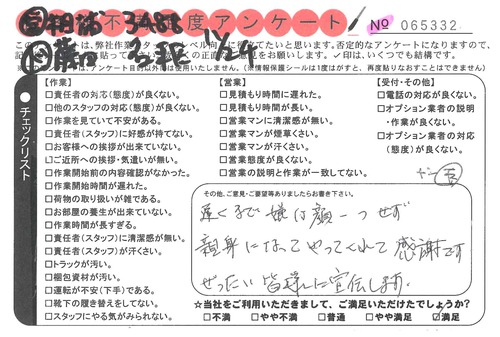 不 度アンケート
№ 065332
1/24
チェックリスト
【作業】
□責任者の対応(態度)が良くない。
□他のスタッフの対応(態度)が良くない。
□作業を見ていて不安がある。
□責任者(スタッフ)に好感が持てない。
□お客様への挨拶が出来ていない。
□ご近所への挨拶・気遣いが無い。
□作業開始前の内容確認がなかった。
□作業開始時間が遅れた。
□荷物の取り扱いが雑である。
□お部屋の養生が出来ていない。
□作業時間が長すぎる。
□責任者(スタッフ)に清潔感が無い。
□責任者(スタッフ)が汗くさい。
□トラックが汚い。
□梱包資材が汚い。
□運転が不安(下手)である。
□靴下の履き替えをしてない。
□スタッフにやる気がみられない。
【営業】
□見積もり時間に遅れた。
□見積もり時間が長い。
□営業マンに清潔感が無い。
□営業マンが煙草くさい。
□営業マンが汗くさい。
□営業態度が良くない。
□営業の説明と作業が一致してない。
【受付・その他】
□電話の対応が良くない。
□オプション業者の説明
・作業が良くない。
□オプション業者の対応
(態度)が良くない。
その他、ご意見・ご要望等ありましたらお書き下さい。
遅くまで嫌な顔一つせず
親身になってやってくれて感謝です
ぜったい皆様に宣伝します。
☆当社をご利用いただきまして、ご満足いただけたでしょうか?
□不満 □やや不満 □普通 □やや満足 ☑満足